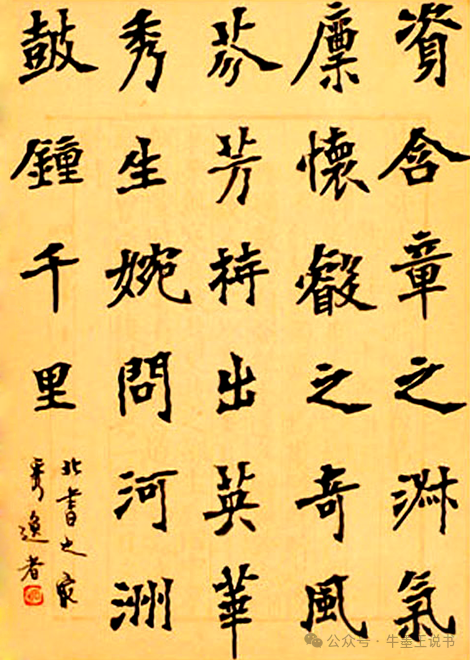 資含章之淑氣
廩懷叡之奇風
芬芳特出英華
秀生婉問河洲
鼓鐘千里
北書之家
秀逸者
公众号 · 牛墨王说书